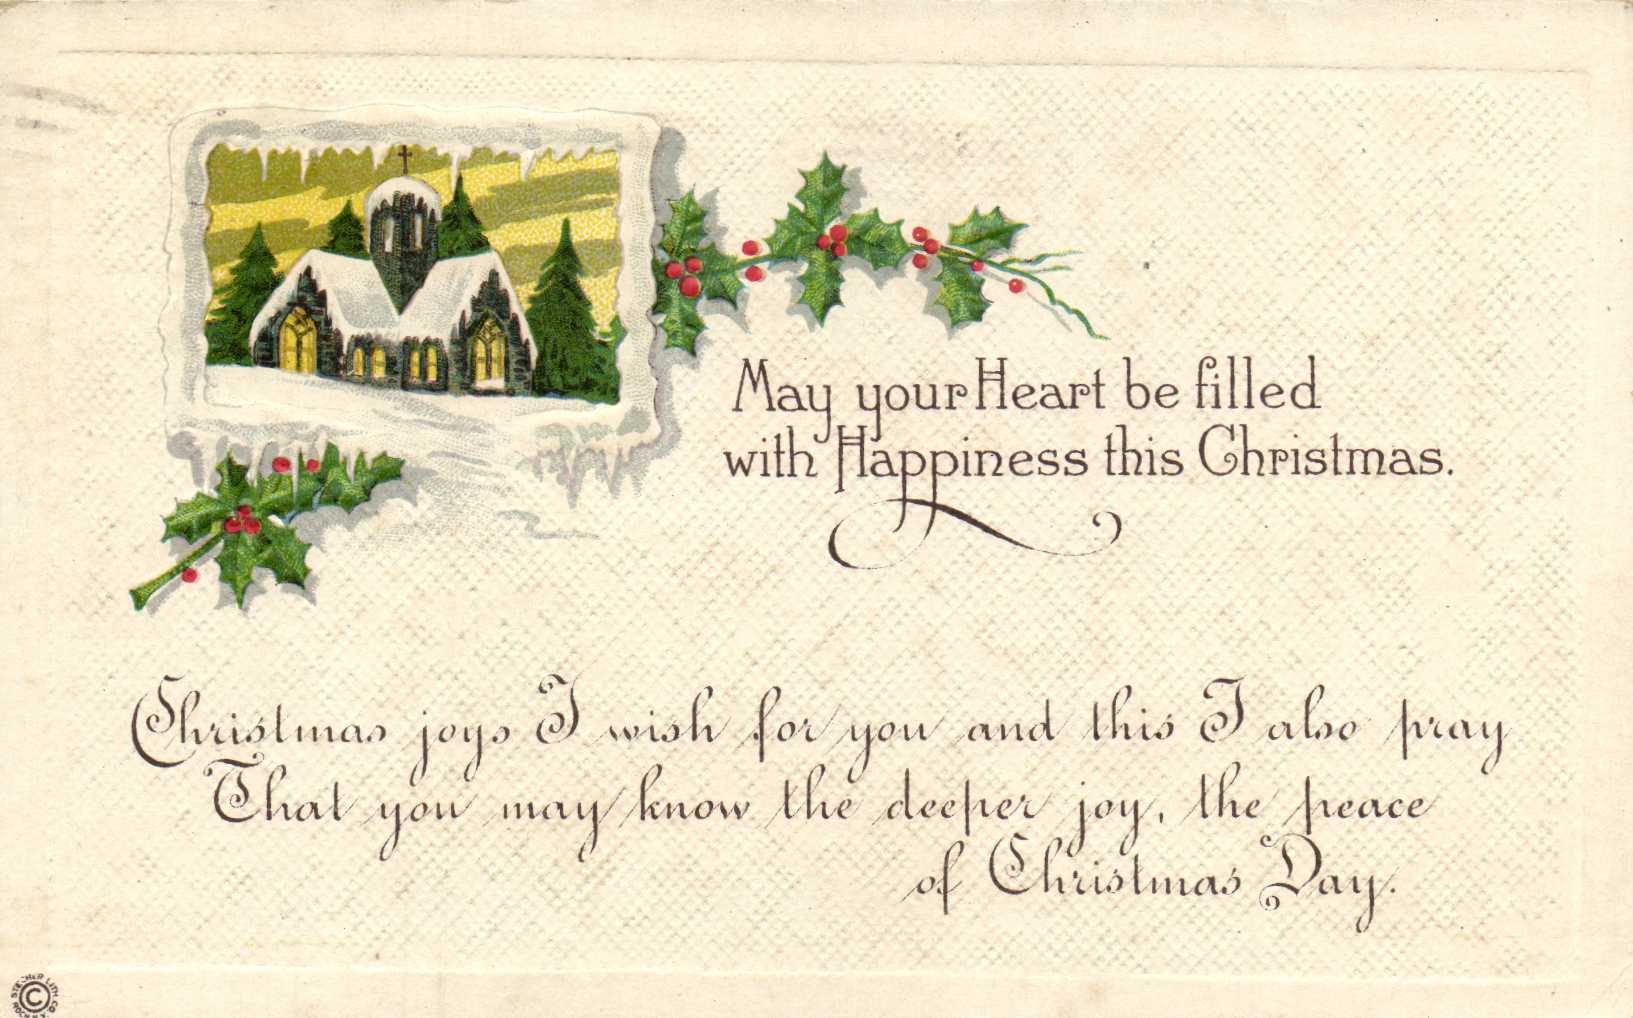 May your Heart be filled
with Happiness this Christmas.
Christmas joys I wish for you and this I also pray
That you may know the deeper joy, the peace
of Christmas Day.
© STECHER LITH CO